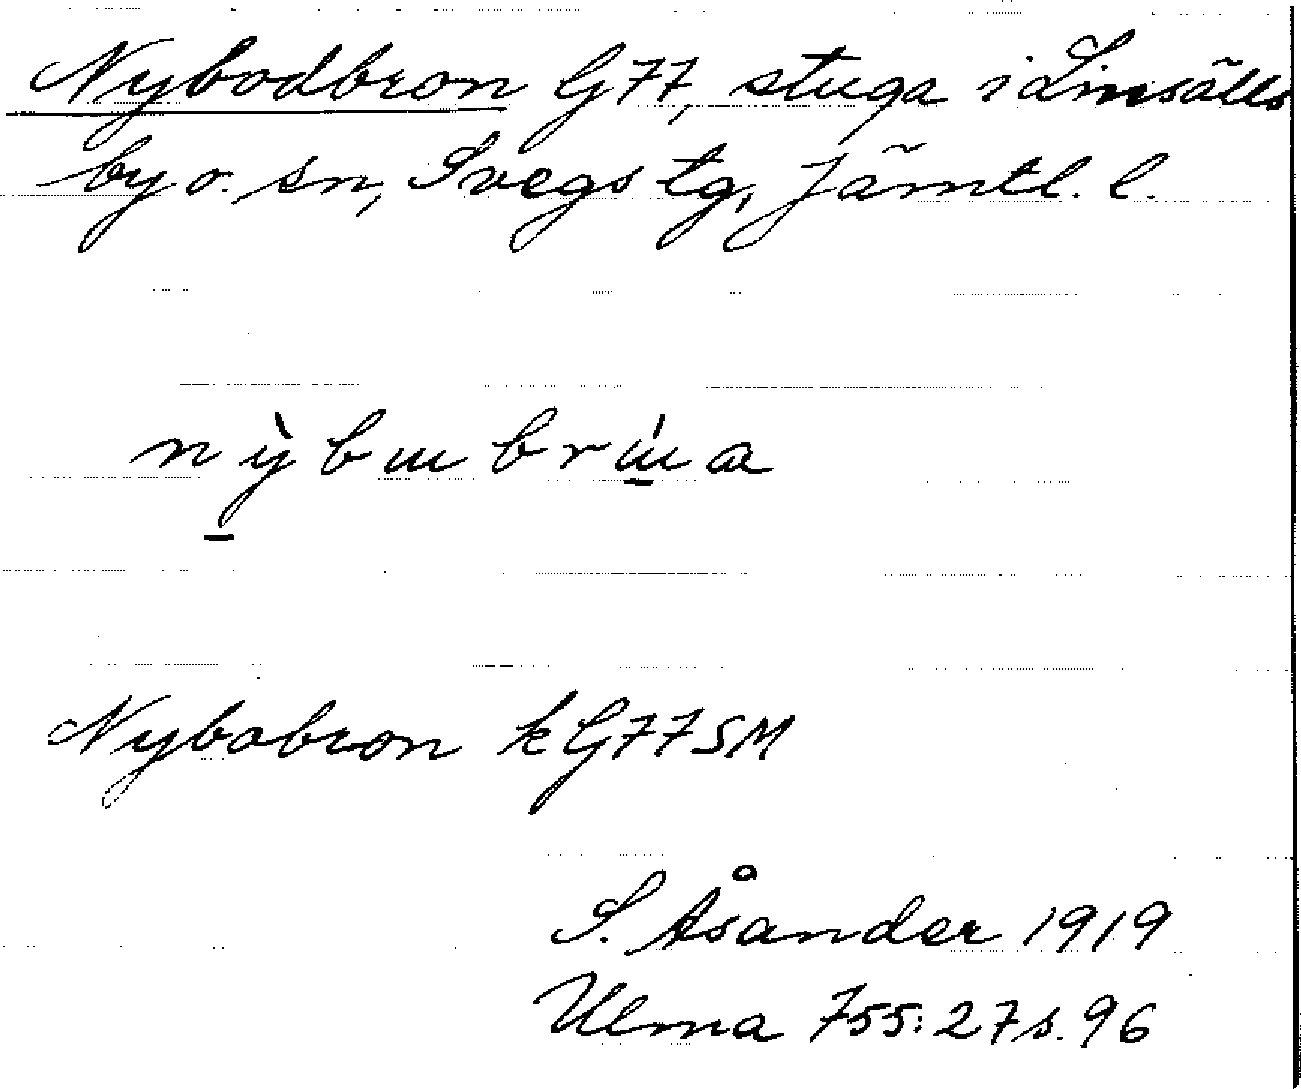 Nybodbron G77, stuga i Linsälls
by o. sn, Svegs tg, Jämtl. l.
nỳbɯbrɯ́a
Nybobron k G77SM
S. Åsander 1919
Ulma 755:27 s. 96